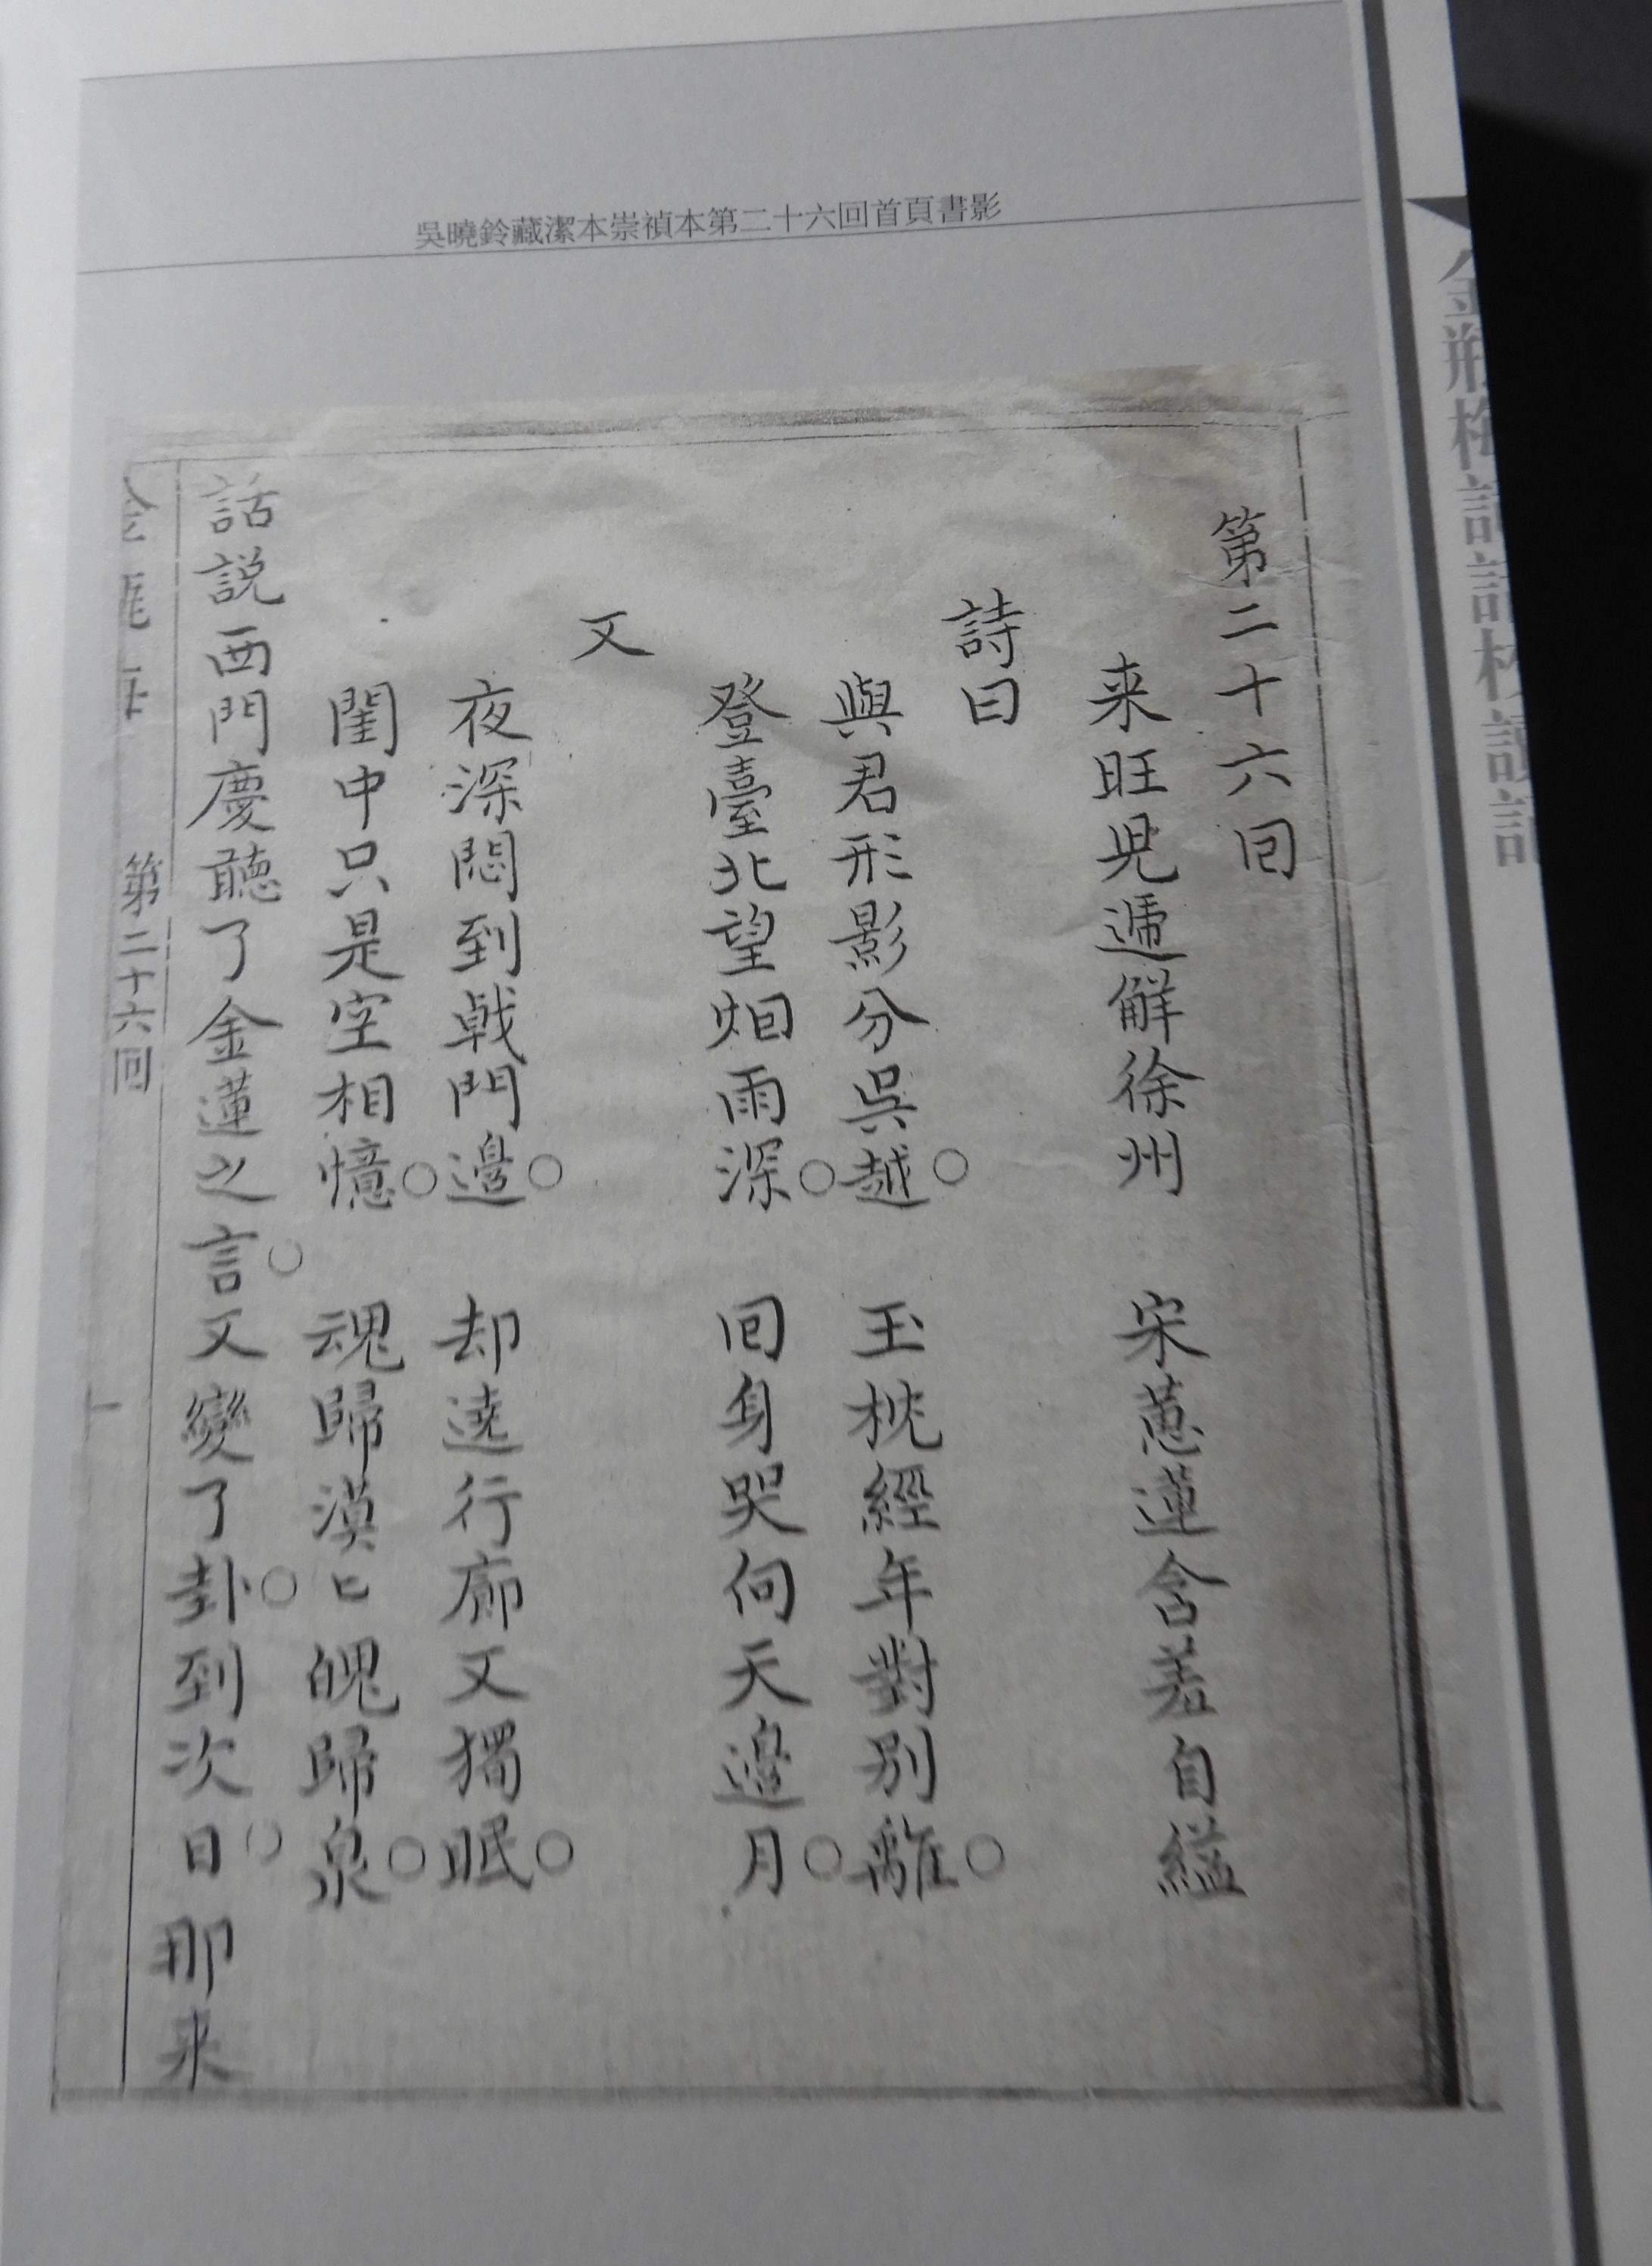 吳曉鈴藏潔本崇禎本第二十六回首頁書影
第二十六回
来旺兒遞解徐州　宋蕙蓮含羞自縊
詩曰
與君形影分吳越○　玉枕經年對别離○
登臺北望烟雨深○　回身哭向天邉月○
又
夜深悶到戟門邉○　却遶行廊又獨眠○
閨中只是空相憶○　魂歸漠〻魄歸泉○
話説西門慶聽了金蓮之言○又變了卦○到次日○那来
第二十六回
金瓶梅